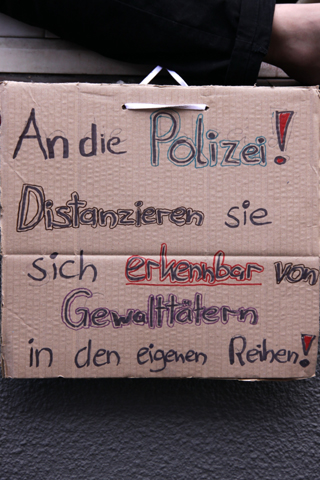 An die Polizei!
Distanzieren sie
sich erkennbar von
Gewalttätern
in den eigenen Reihen!